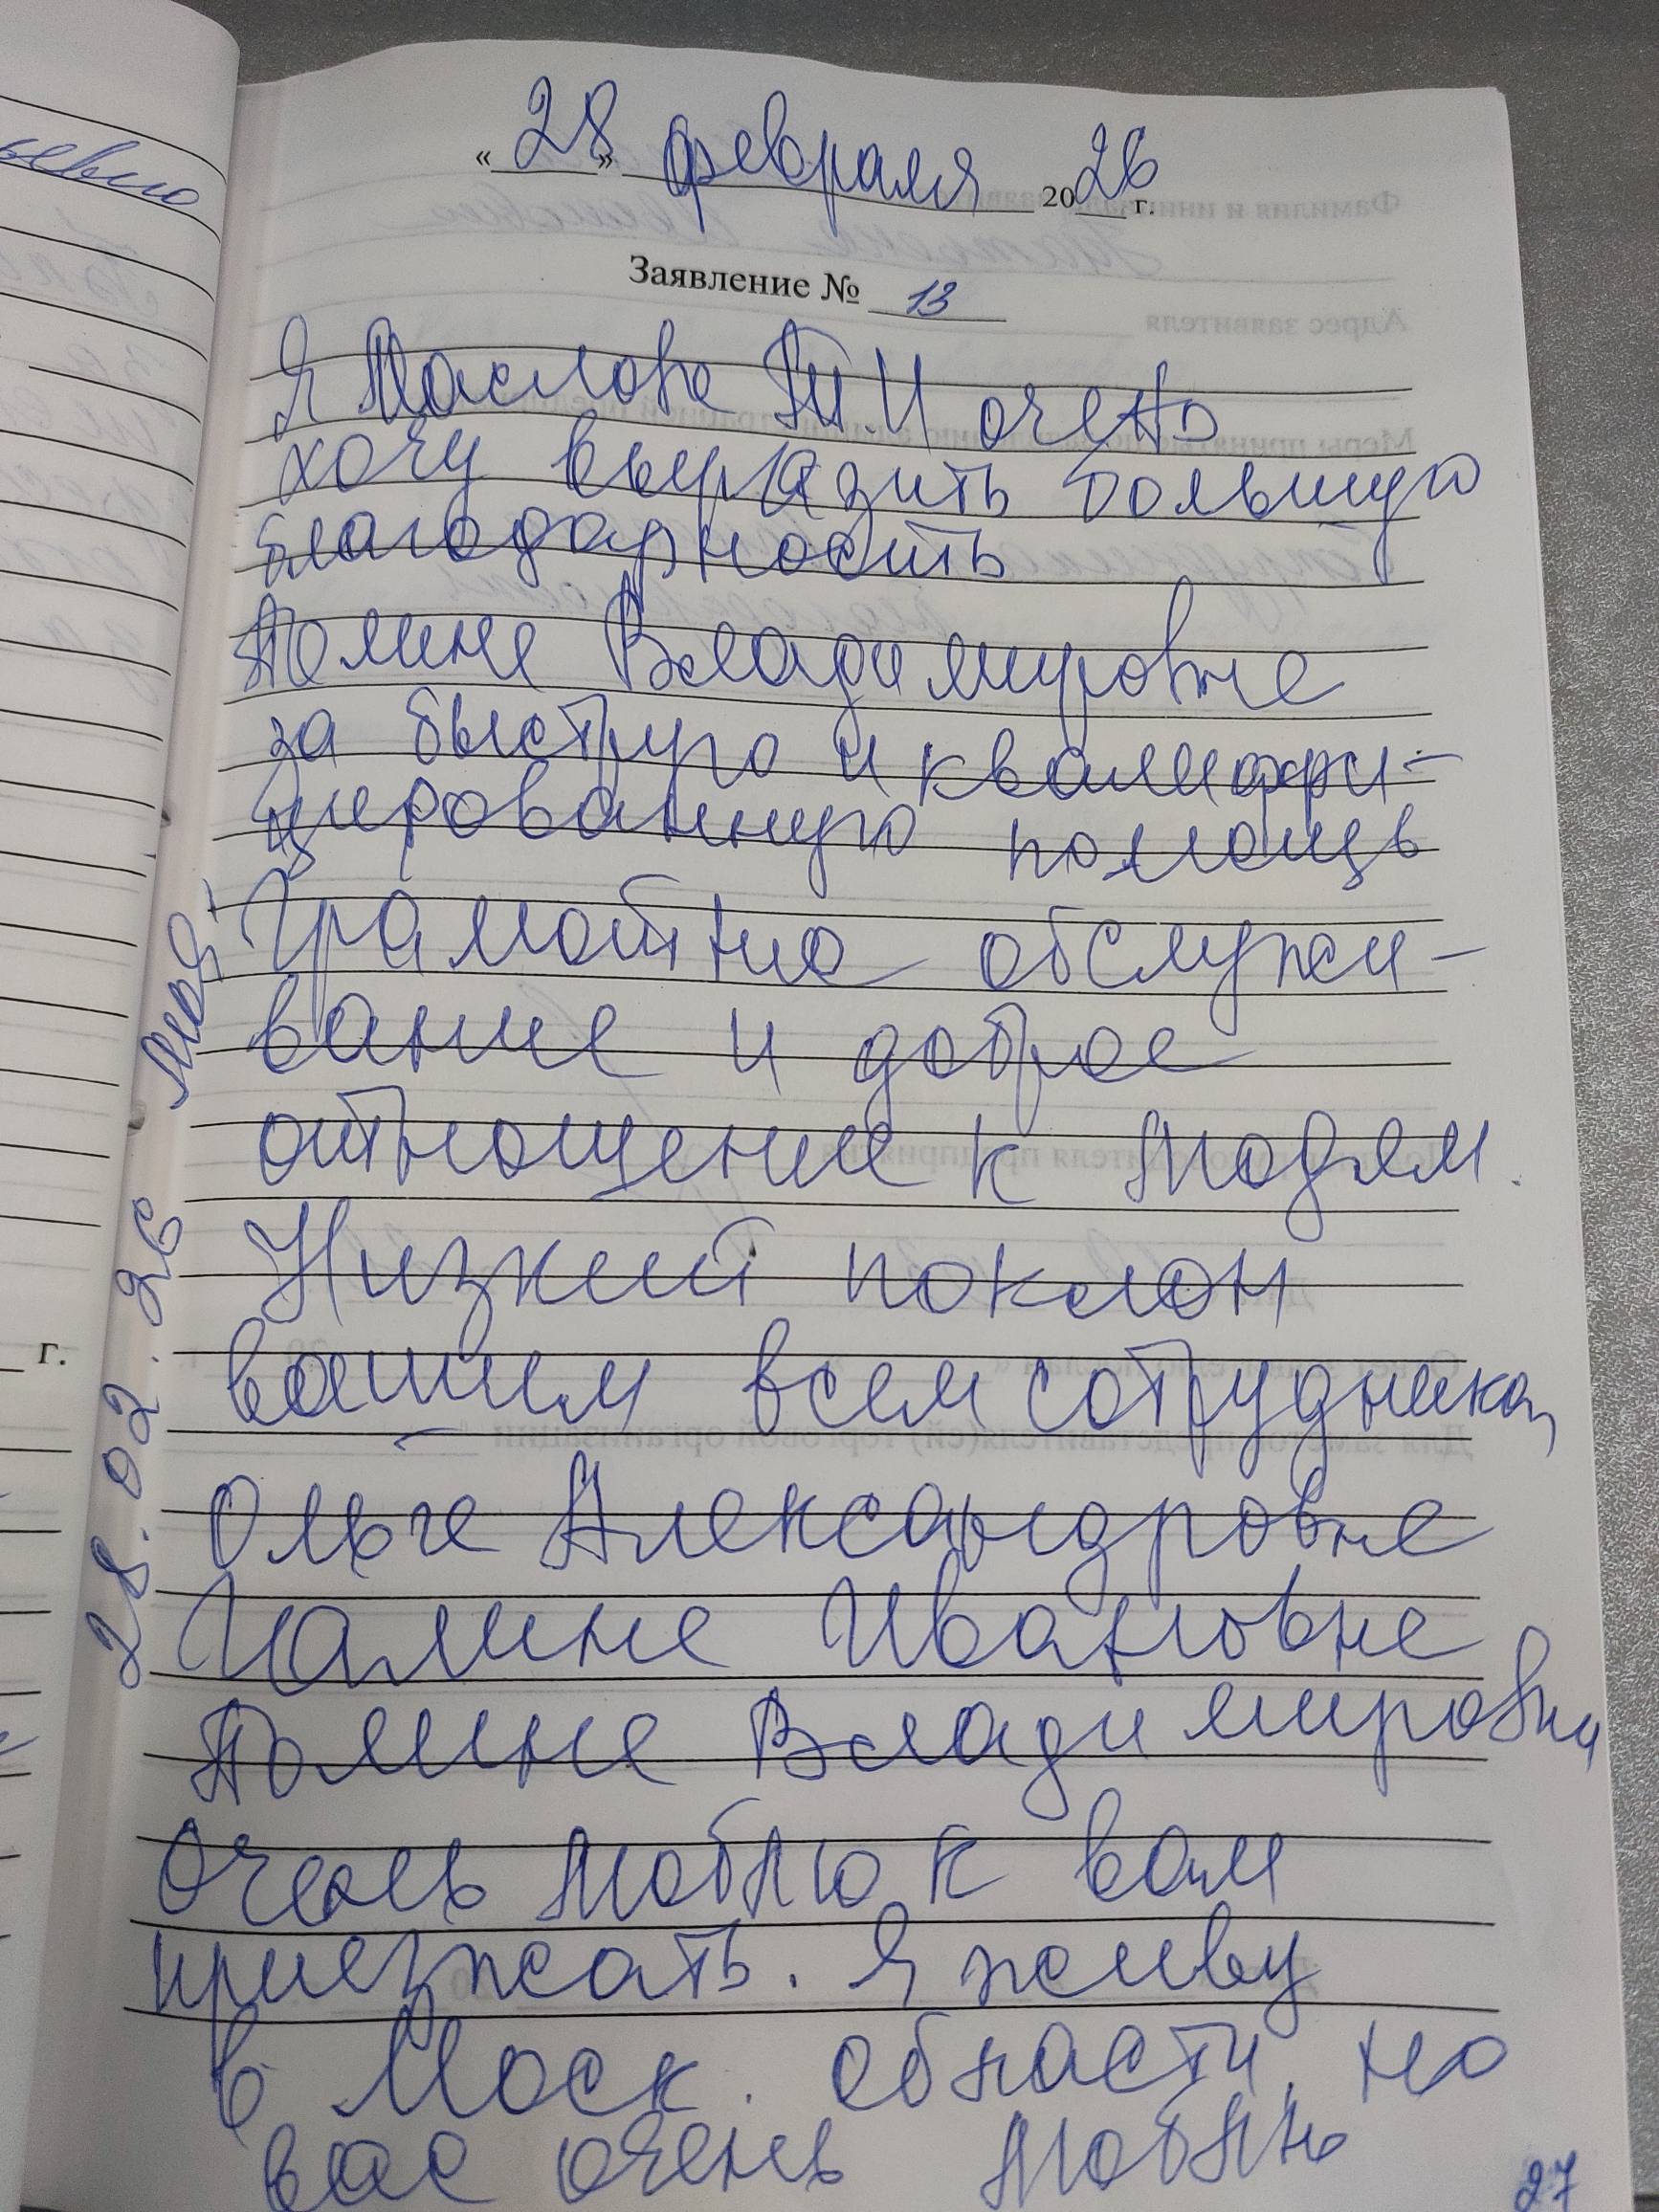 «28» февраля 2026 г.
Заявление № 13
Я Маслова Т.И очень
хочу выразить большую
благодарность
Полине Владимировне
за быструю и квалифи-
цированную помощь
Грамотно обслужи-
вание и доброе
отношение к людям.
Низкий поклон
вашим всем сотрудника
Ольге Александровне
Галине Ивановне
Полине Владимировна
Очень люблю к вам
приезжать. Я живу
в Моск. области, но
вас очень люблю
28.02.26
г.
27